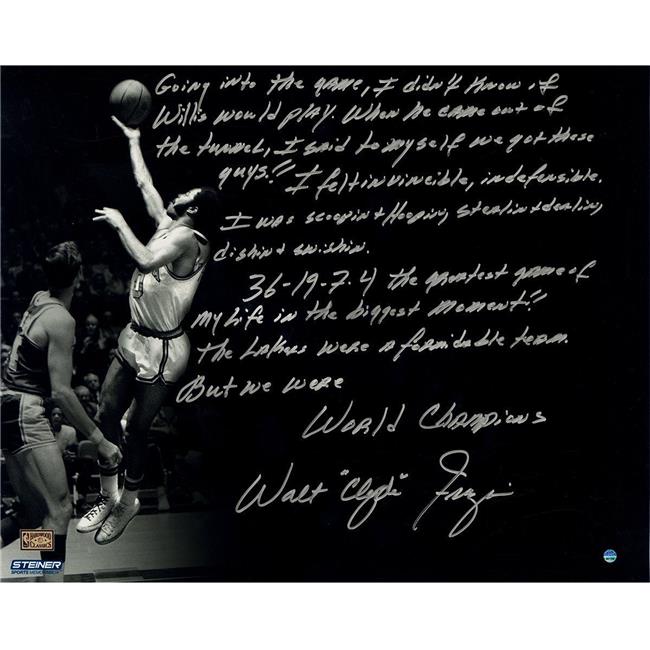 Going into the game, I didn't know if
Willis would play. When he came out of
the tunnel, I said to myself we got these
guys!! I felt invincible, indefensible.
I was scoopin + Hoopin, stealin + dealin,
dishin + swishin.
36-19-7-4 the greatest game of
my life in the biggest moment!!
the Lakers were a formidable team.
But we were
World Champions
Walt "Clyde" Frazier
HARDWOOD
CLASSICS
STEINER
SPORTS MEMORABILIA